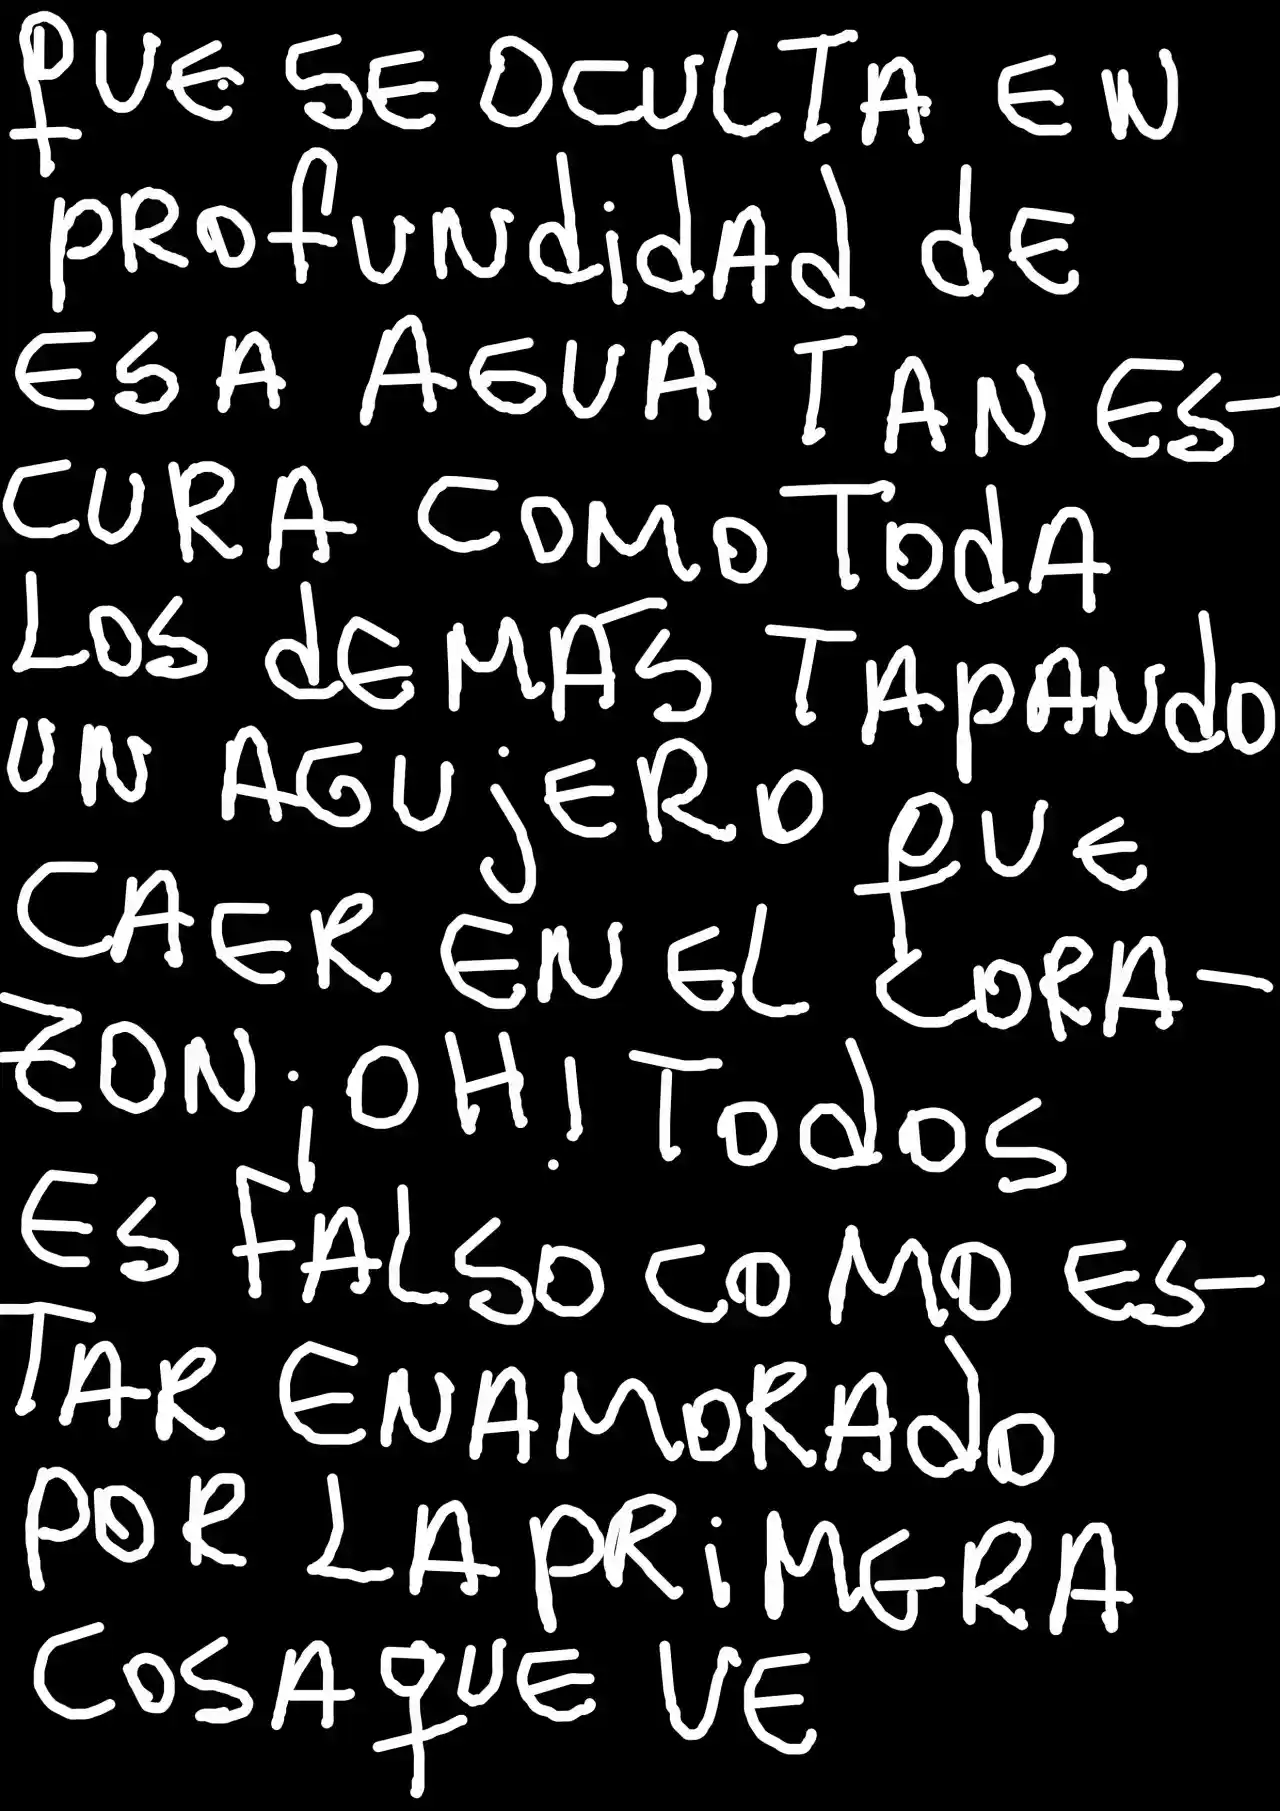 QUE SE OCULTA EN
PROfUNdidAd dE
ESA AGUA TAN ES-
CURA COMO TOdA
LOS dEMÁS TAPANdO
UN AGUjERO QUE
CAER EN EL CORA-
ZON ¡OH! TOdOS
ES FALSO COMO ES-
TAR ENAMORAdO
POR LA PRiMERA
COSA QUE VE